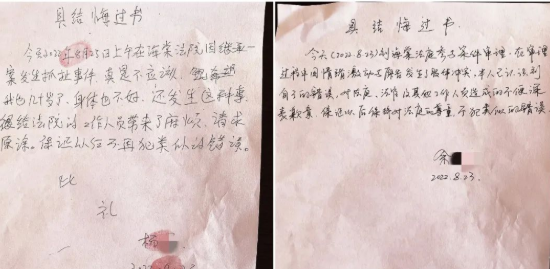 具结悔过书
今天2022年8月23日上午在海棠法院因继承一
案发生抓扯事件 真是不应该
我已几十岁了,身体也不好,还发生这种事
给法院的工作人员带来了麻烦,请求
原谅。保证从今不再犯类似的错误。
此
礼
杨
2022.
具结悔过书
今天(2022.8.23)到海棠法庭参与案件审理,在审理
过程中因情绪激动与原告发生了肢体冲突,本人已认识到
自己的错误,对法庭、法官及其他工作人员造成的不便深
表歉意,保证以后保持对法庭的尊重,不犯类似的错误
余
2022.8.23.